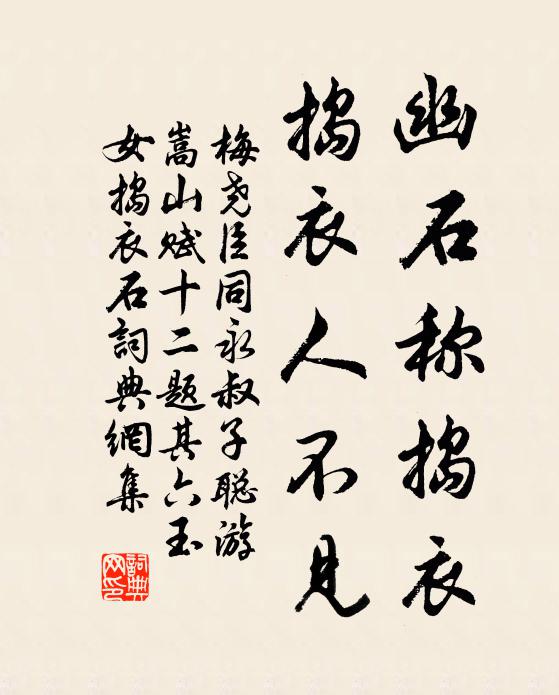 幽石称捣衣
捣衣人不见
梅尧臣同永叔子聪游
嵩山赋十二题其六玉
女捣衣石詞典網集
詞典
网印